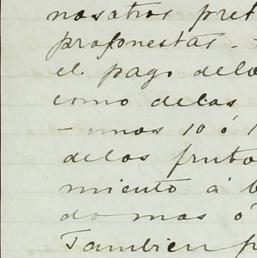 nosotros pret
proponestas. -
el pago delo
como delas
- unos 10 ó 1
delos fruto
miento á b
do mas ó
Tambien p